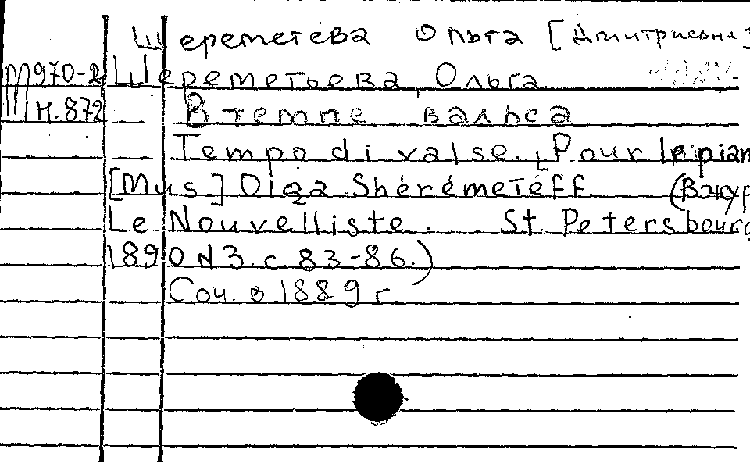 Шереметева Ольга [Дмитриевна]
М970-2 Шереметьева, Ольга
М.872 В темпе вальса
Tempo di valse. [Pour le pian
[Mus] Olga Shérémeteff (Вжур
Le Nouvelliste. St Petersbourg
1890 N3. с 83-86.)
Соч. в 1889 г.